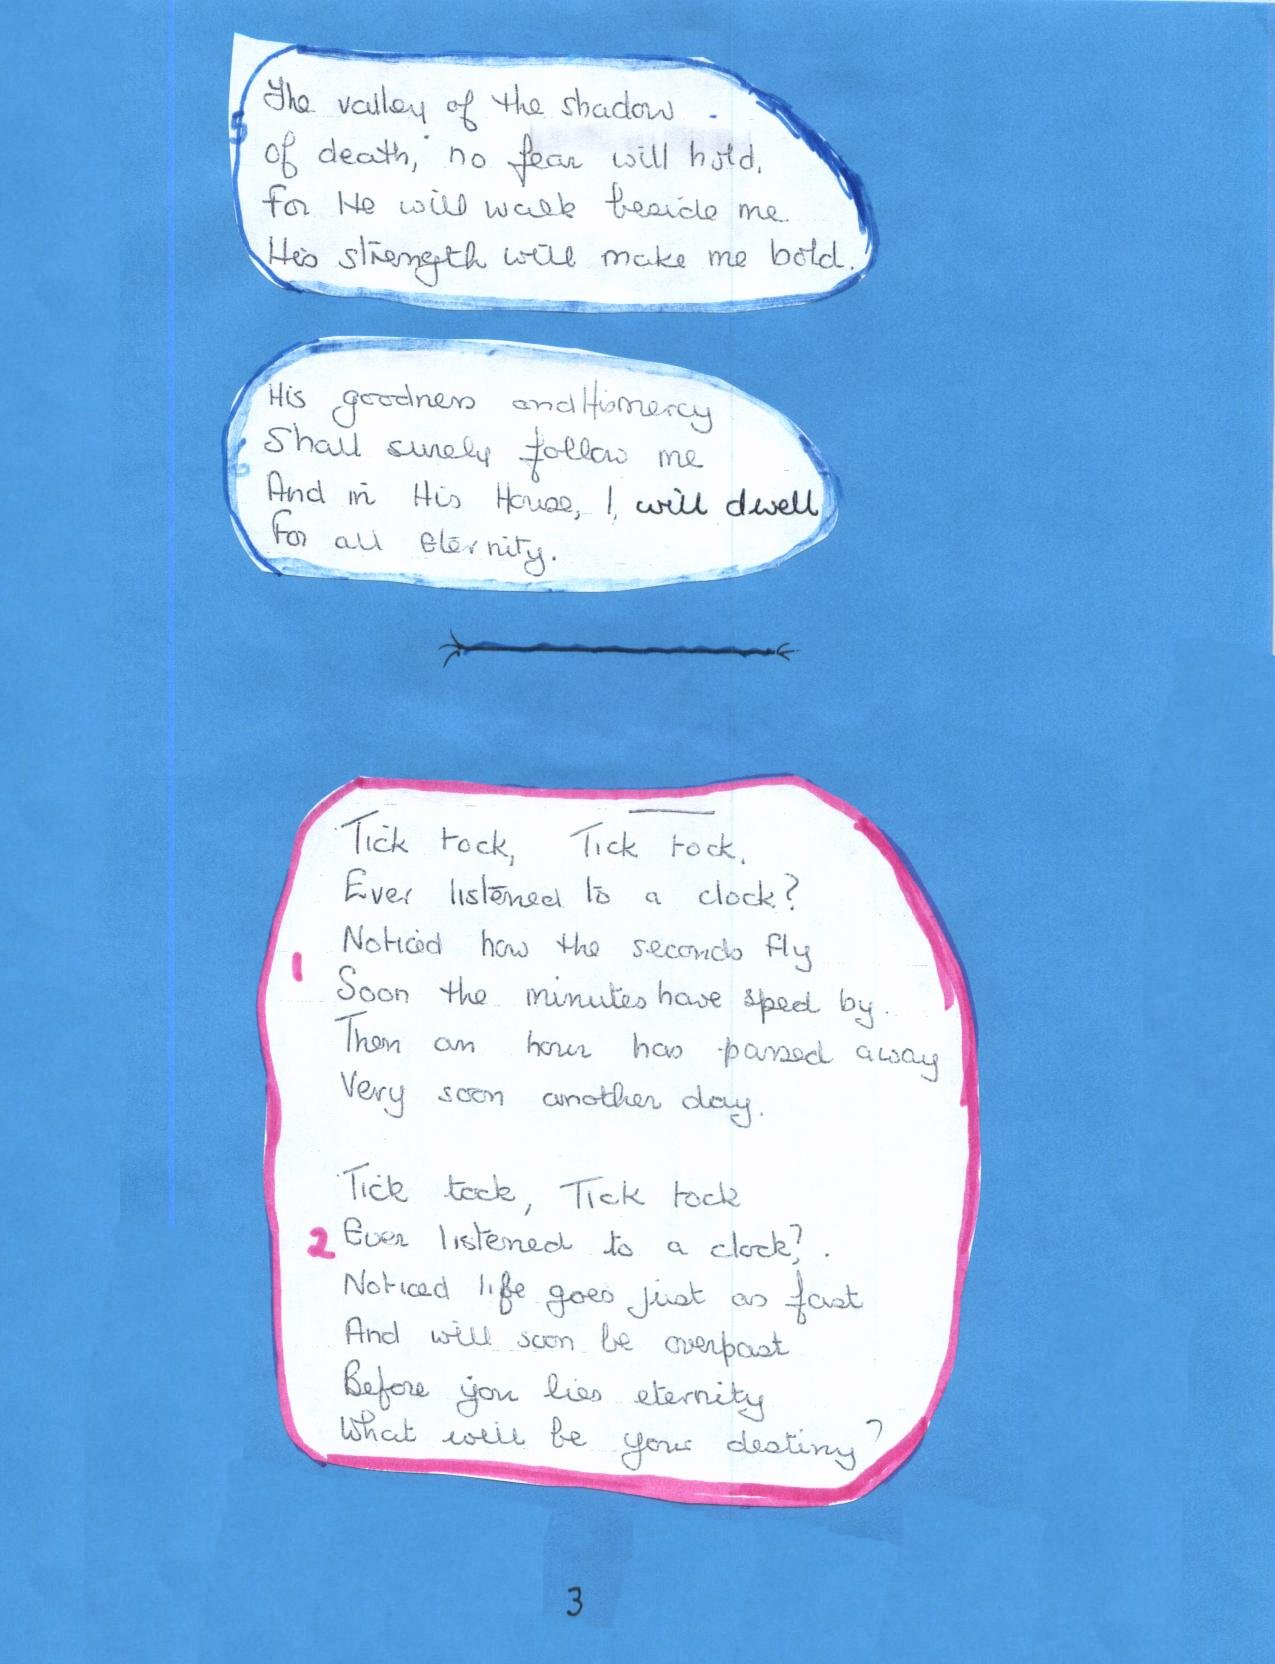 5
The valley of the shadow
of death, no fear will hold.
For He will walk beside me
His strength will make me bold.
6
His goodness and His mercy
Shall surely follow me
And in His House, I, will dwell
For all eternity.
Tick tock, Tick tock.
Ever listened to a clock?
Noticed how the seconds fly
1
Soon the minutes have sped by.
Then an hour has passed away
Very soon another day.
Tick tock, Tick tock
2 Ever listened to a clock?.
Noticed life goes just as fast
And will soon be overpast
Before you lies eternity
What will be your destiny?
3